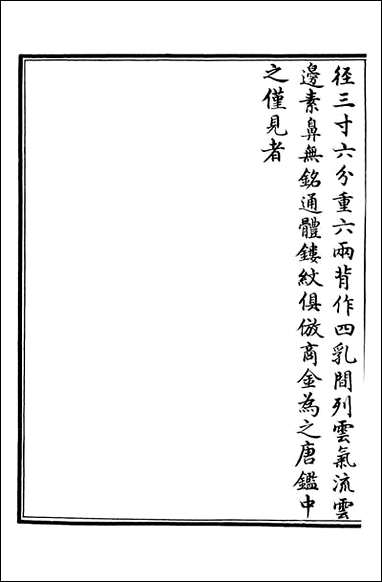 徑三寸六分重六兩背作四乳間列雲氣流雲
邊素鼻無銘通體鏤紋俱倣商金為之唐鑑中
之僅見者